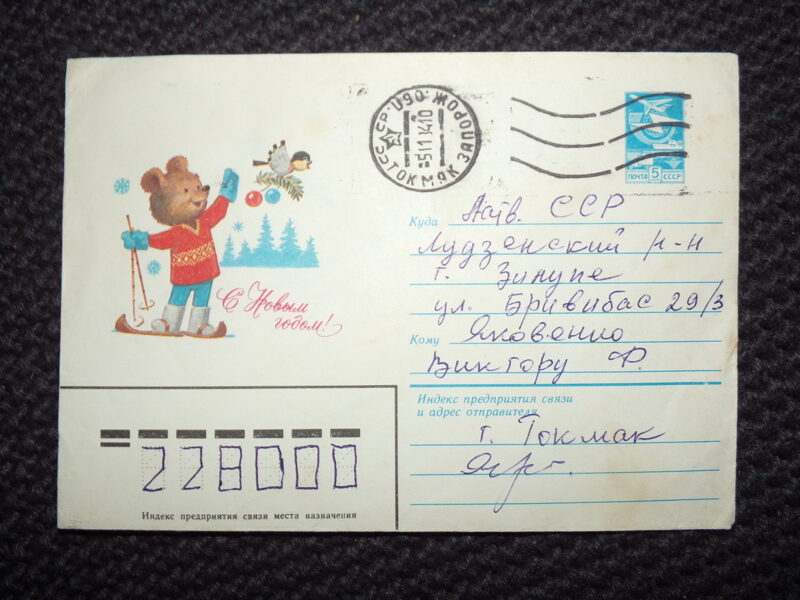 СССР·U90·ЖОРОПАЗ
-5111 8410
ТОКМАК
ПОЧТА 5 СССР
С Новым
годом!
Куда Латв. ССР
Лудзенский р-н
г. Зилупе
ул. Бривибас 29/3
Кому Яковенко
Виктору Ф.
Индекс предприятия связи
и адрес отправителя
г. Токмак
228000
Индекс предприятия связи места назначения